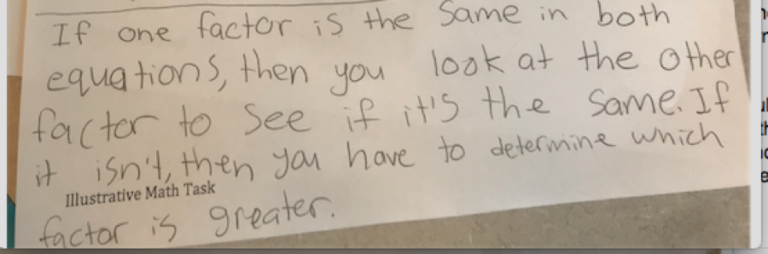 If one factor is the same in both
equations, then you look at the other
factor to see if it's the same. If
it isn't, then you have to determine which
Illustrative Math Task
factor is greater.